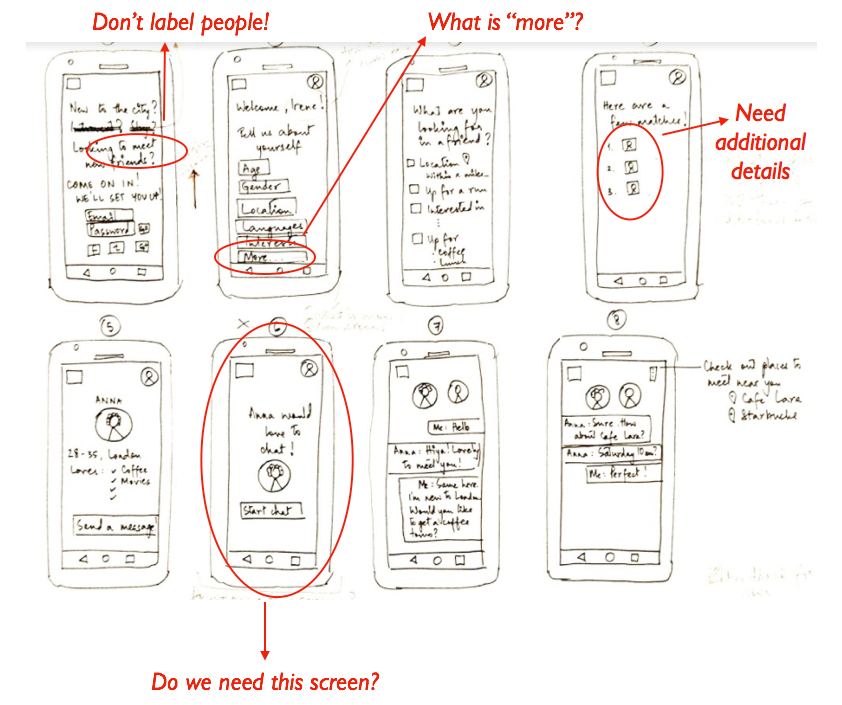 Don't label people!
What is "more"?
New to the city?
Looking to meet
new friends?
COME ON IN!
WE'LL SET YOU UP!
Email
Password
Welcome, Irene!
Tell us about
yourself
Age
Gender
Location
Languages
Interests
More...
What are you
looking for
in a friend?
Location
Within a miles...
Up for a run
Interested in
:
Up for
. coffee
. lunch
Here are a
few matches!
1.
2.
3.
Need
additional
details
5
ANNA
28-35, London
Loves: ✓ Coffee
✓ Movies
✓
✓
Send a message!
x
6
Anna would
love to
chat!
Start chat
7
Me: Hello
Anna: Hiya! Lovely
to meet you!
Me: Same here.
I'm new to London
Would you like
to get a coffee
tomo?
8
Anna: Sure. How
about Cafe Lara?
Anna: Saturday 10am?
Me: Perfect!
Check out places to
meet near you
Cafe Lara
Starbucks
Do we need this screen?